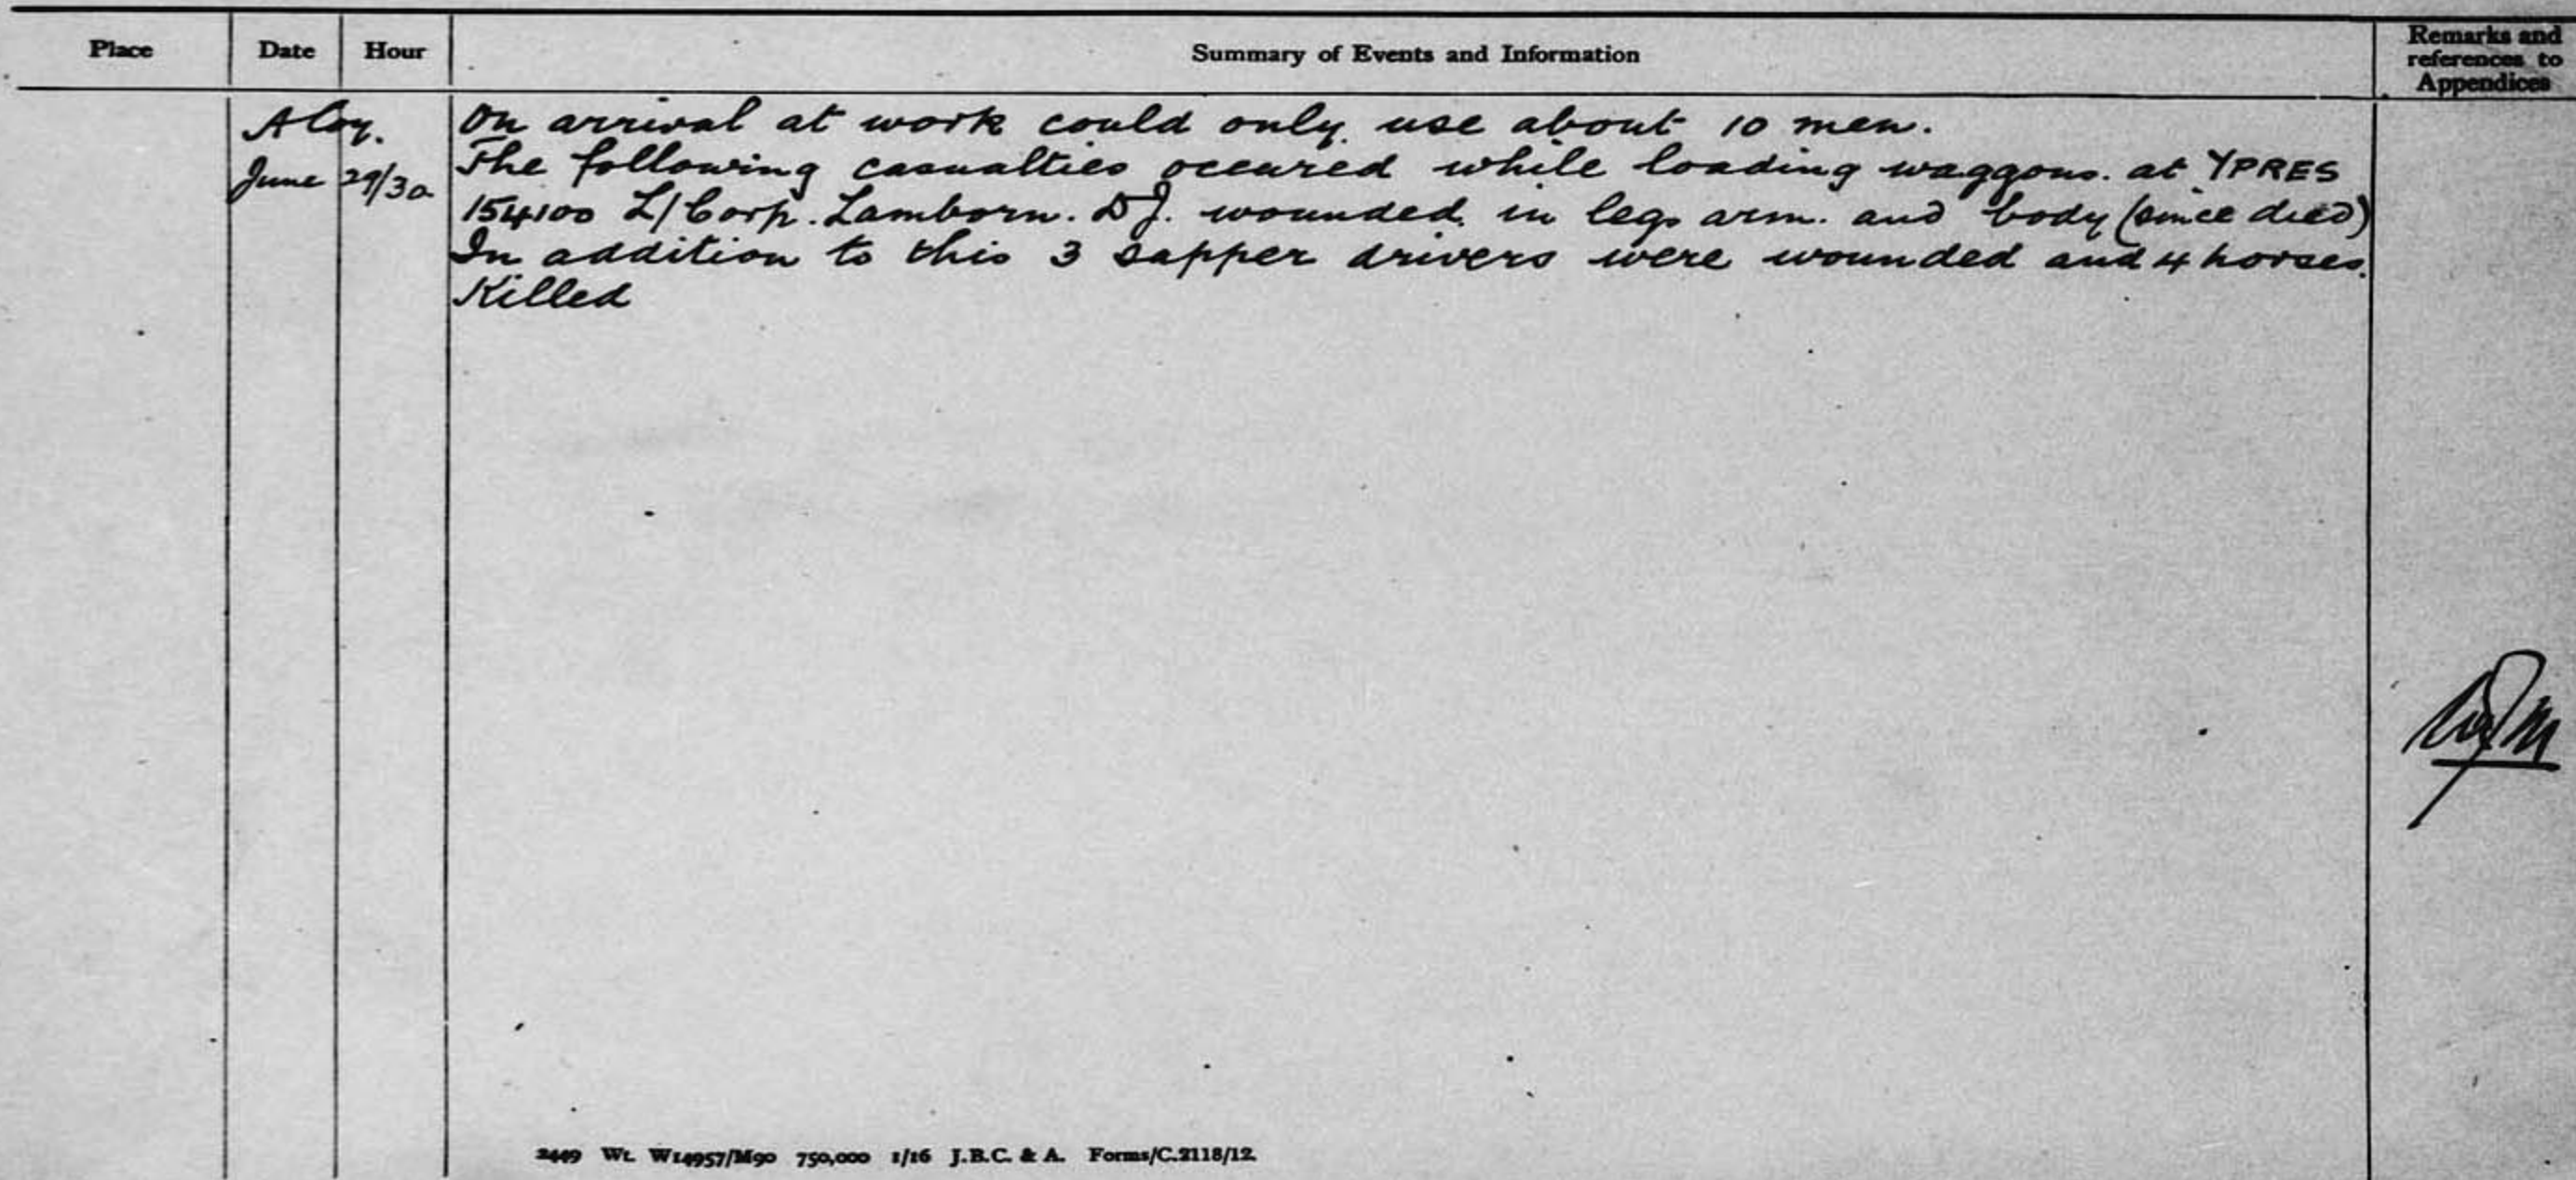 Place Date Hour Summary of Events and Information Remarks and
references to
Appendices
A Coy. On arrival at work could only use about 10 men.
June 29/30 The following casualties occured while loading waggons. at YPRES
154100 L/Corp. Lamborn. D J. wounded in legs arm. and body (since died)
In addition to this 3 sapper drivers were wounded and 4 horses.
Killed
2449 Wt. W14957/M90 750,000 1/16 J.B.C. & A. Forms/C.2118/12.